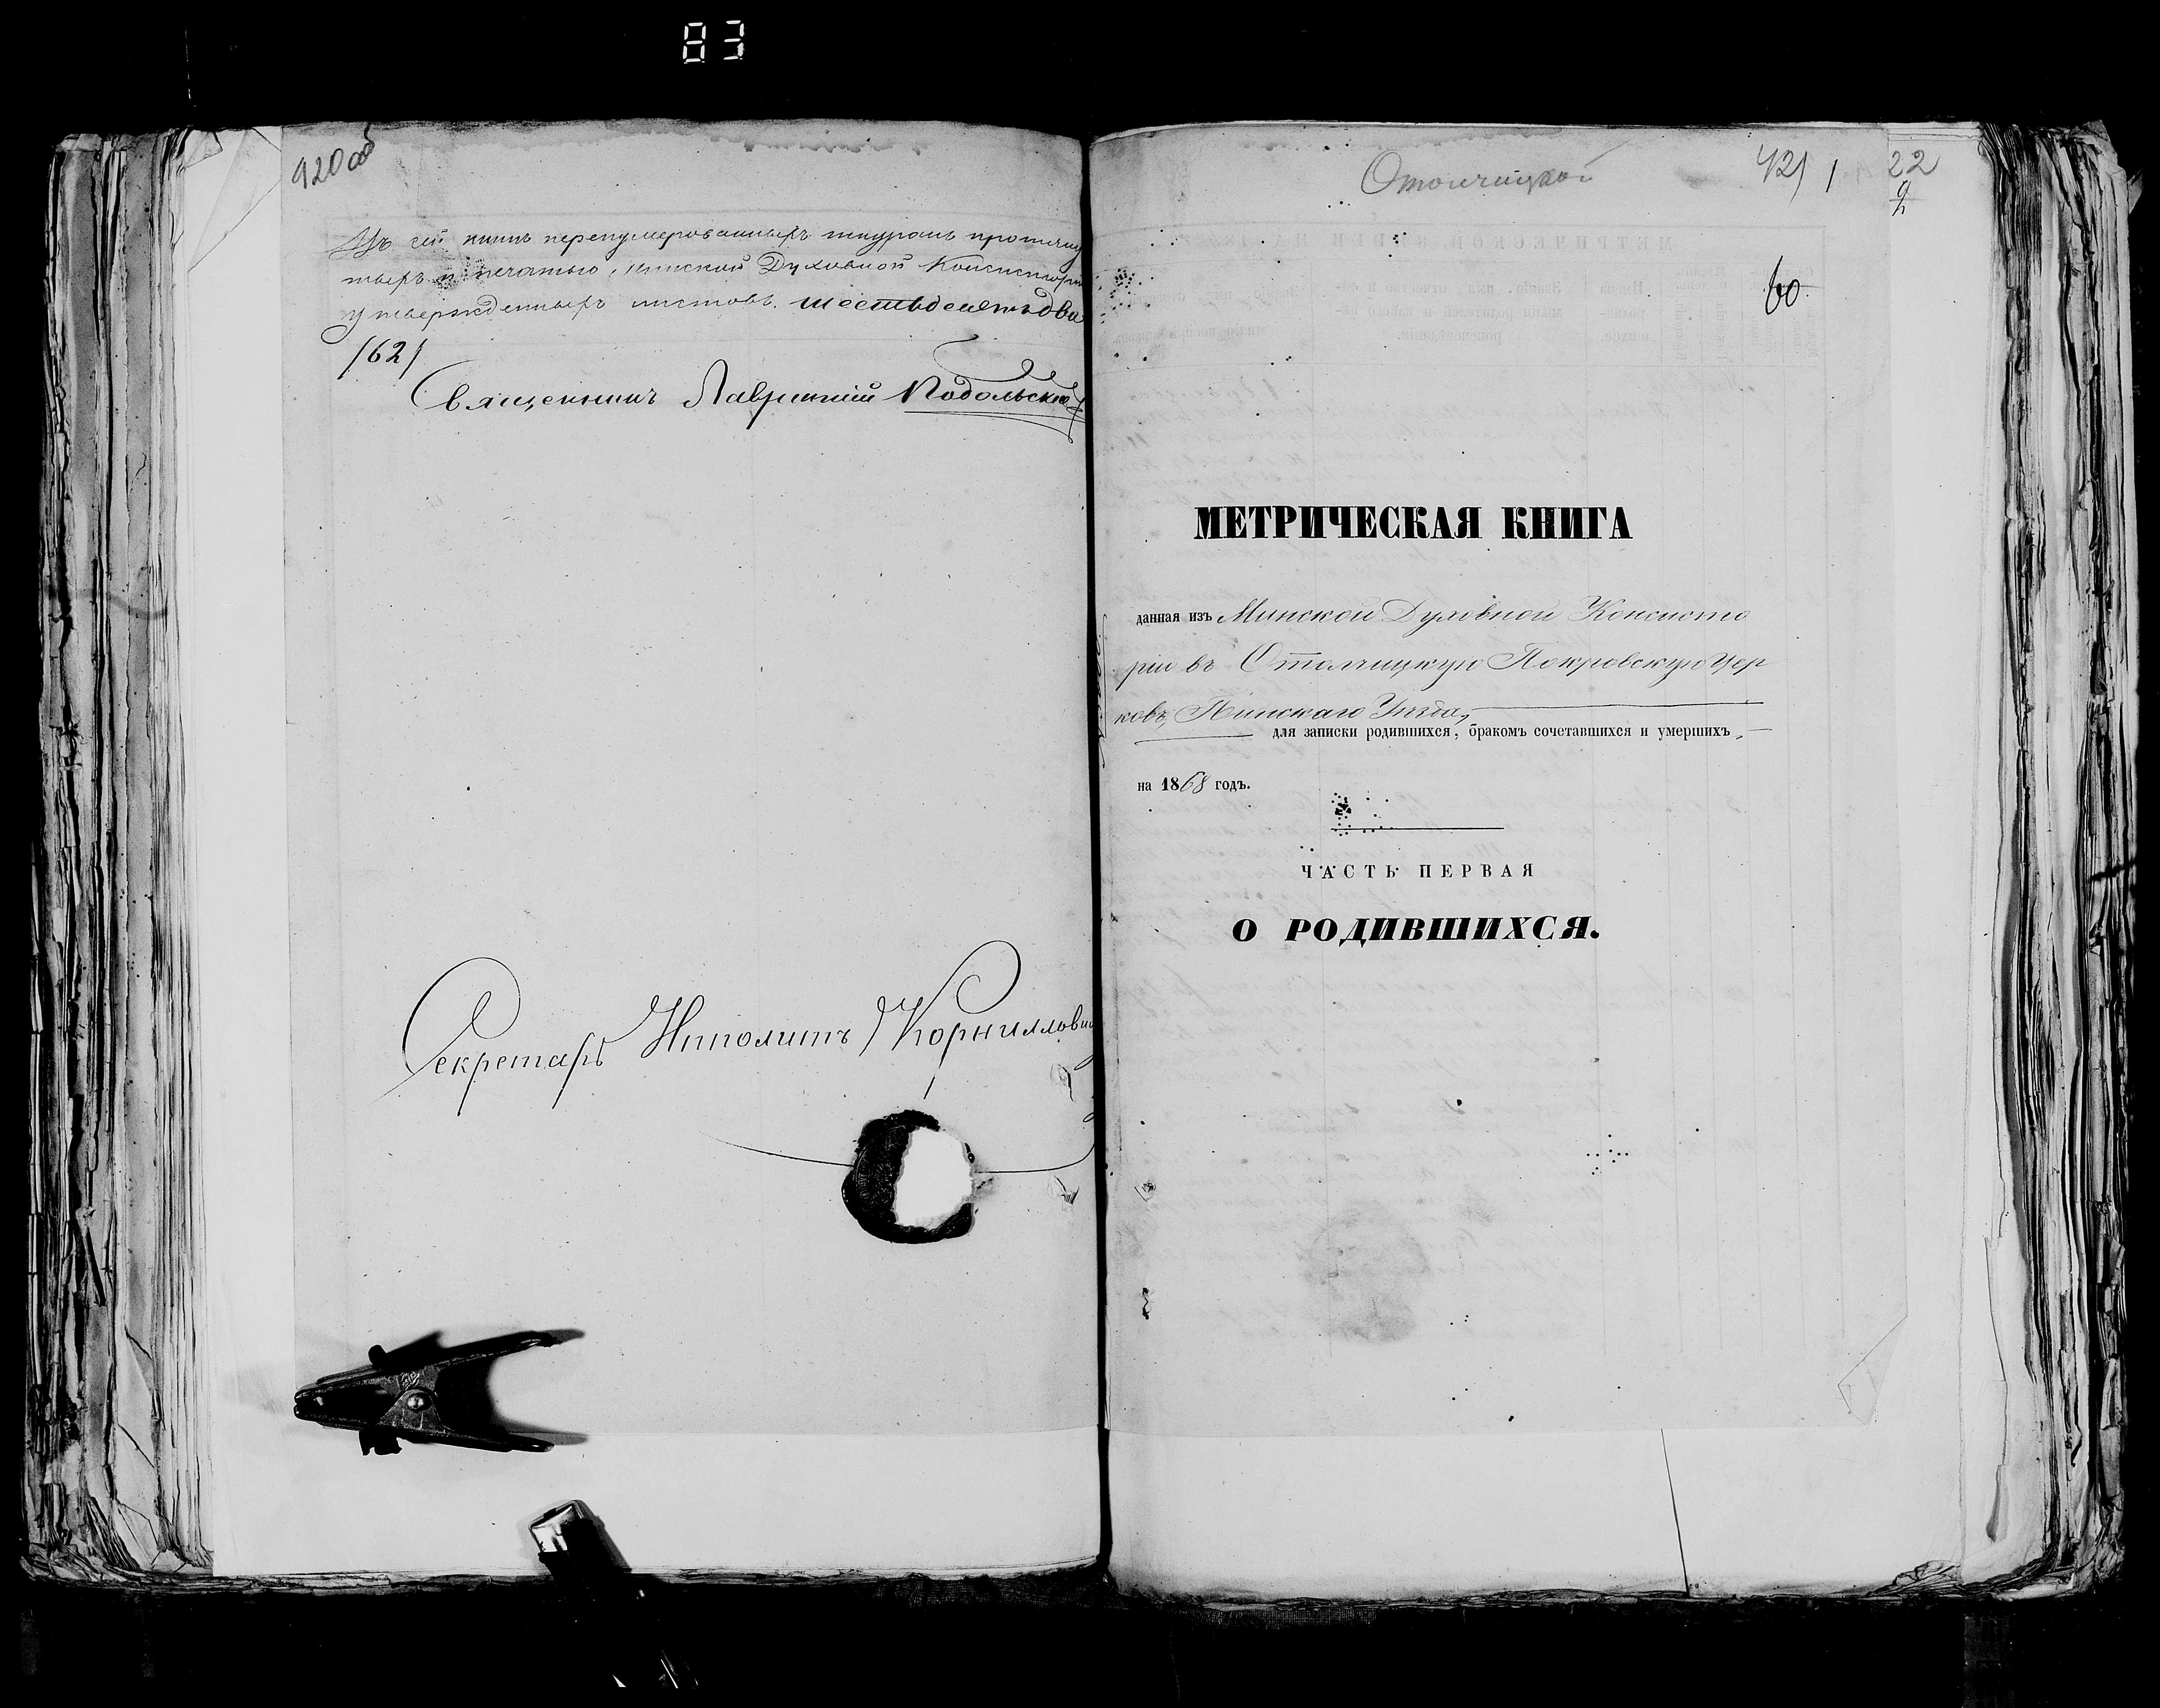 83
920об
Въ сей книгѣ перенумерованныхъ шнуромъ протяну
тыхъ и печатью Минской Духовной Консисторіи
утвержденныхъ листовъ шестьдесятъ два
/62/
Священникъ Лаврентій Подольскій
Секретарь Ипполитъ Корнилович
Отолчицкой
921 1 22
60.
МЕТРИЧЕСКАЯ КНИГА
данная изъ Минской Духовной Консисто
ріи въ Отолчицкую Покровскую Цер
ковь, Пинскаго Уѣзда,
для записки родившихся, бракомъ сочетавшихся и умершихъ,
на 1868 годъ.
ЧАСТЬ ПЕРВАЯ
О РОДИВШИХСЯ.